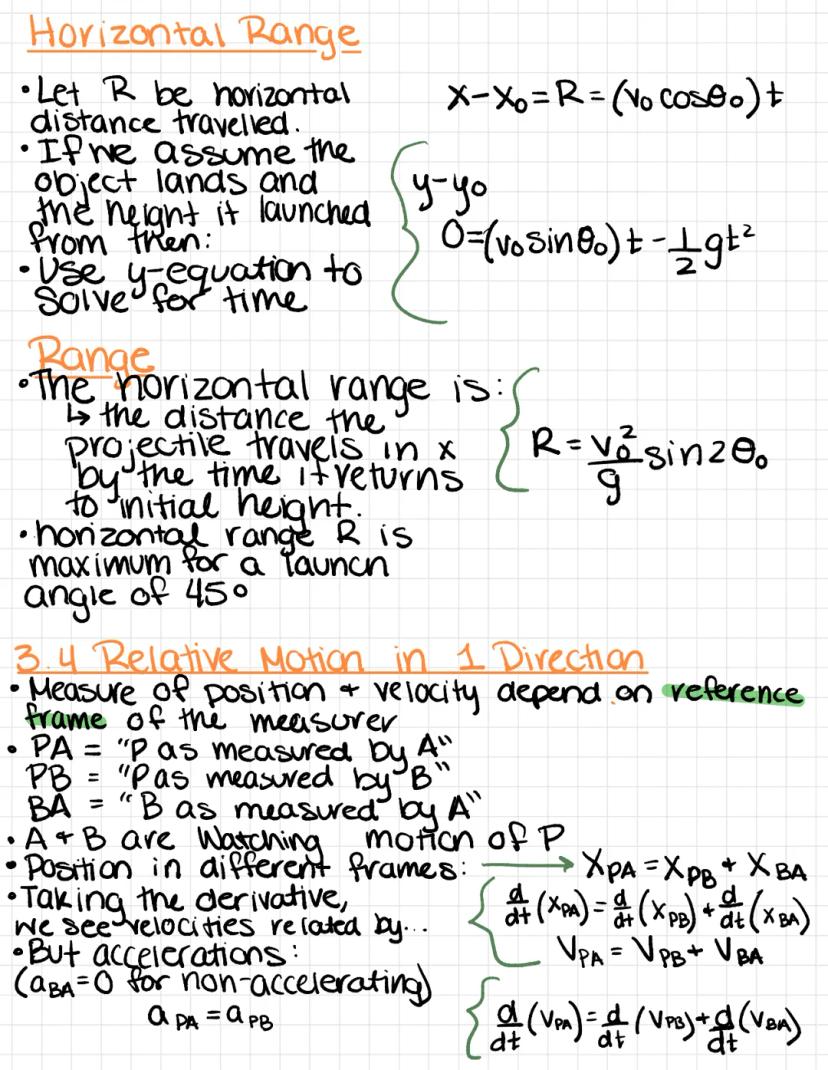 Horizontal Range
• Let R be horizontal
distance travelled.
x-x₀ = R = (v₀ cosθ₀) t
• If we assume the
object lands and
the height it launched
from then:
• Use y-equation to
solve for time
y-y₀
0=(v₀ sinθ₀) t - 1/2 gt²
Range
• The horizontal range is:
↳ the distance the
projectile travels in x
by the time it returns
to initial height.
R = v₀²/g sin2θ₀
• horizontal range R is
maximum for a launch
angle of 45°
3.4 Relative Motion in 1 Direction
• Measure of position + velocity depend on reference
frame of the measurer
• PA = "P as measured by A"
PB = "P as measured by B"
BA = "B as measured by A"
• A + B are Watching motion of P
• Position in different frames: → X_PA = X_PB + X_BA
• Taking the derivative,
we see velocities related by...
d/dt (X_PA) = d/dt (X_PB) + d/dt (X_BA)
V_PA = V_PB + V_BA
• But accelerations:
(a_BA = 0 for non-accelerating)
a_PA = a_PB
d/dt (V_PA) = d/dt (V_PB) + d/dt (V_BA)